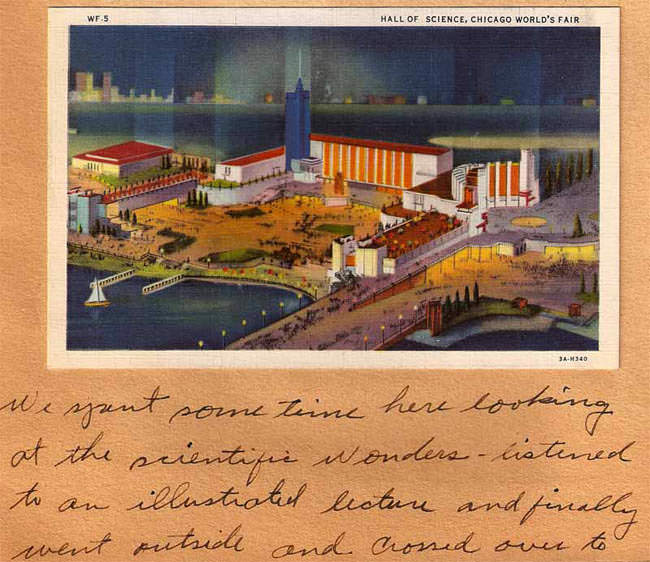 WF-5 HALL OF SCIENCE, CHICAGO WORLD'S FAIR
3A-H340
We spent some time here looking
at the scientific wonders - listened
to an illustrated lecture and finally
went outside and crossed over to